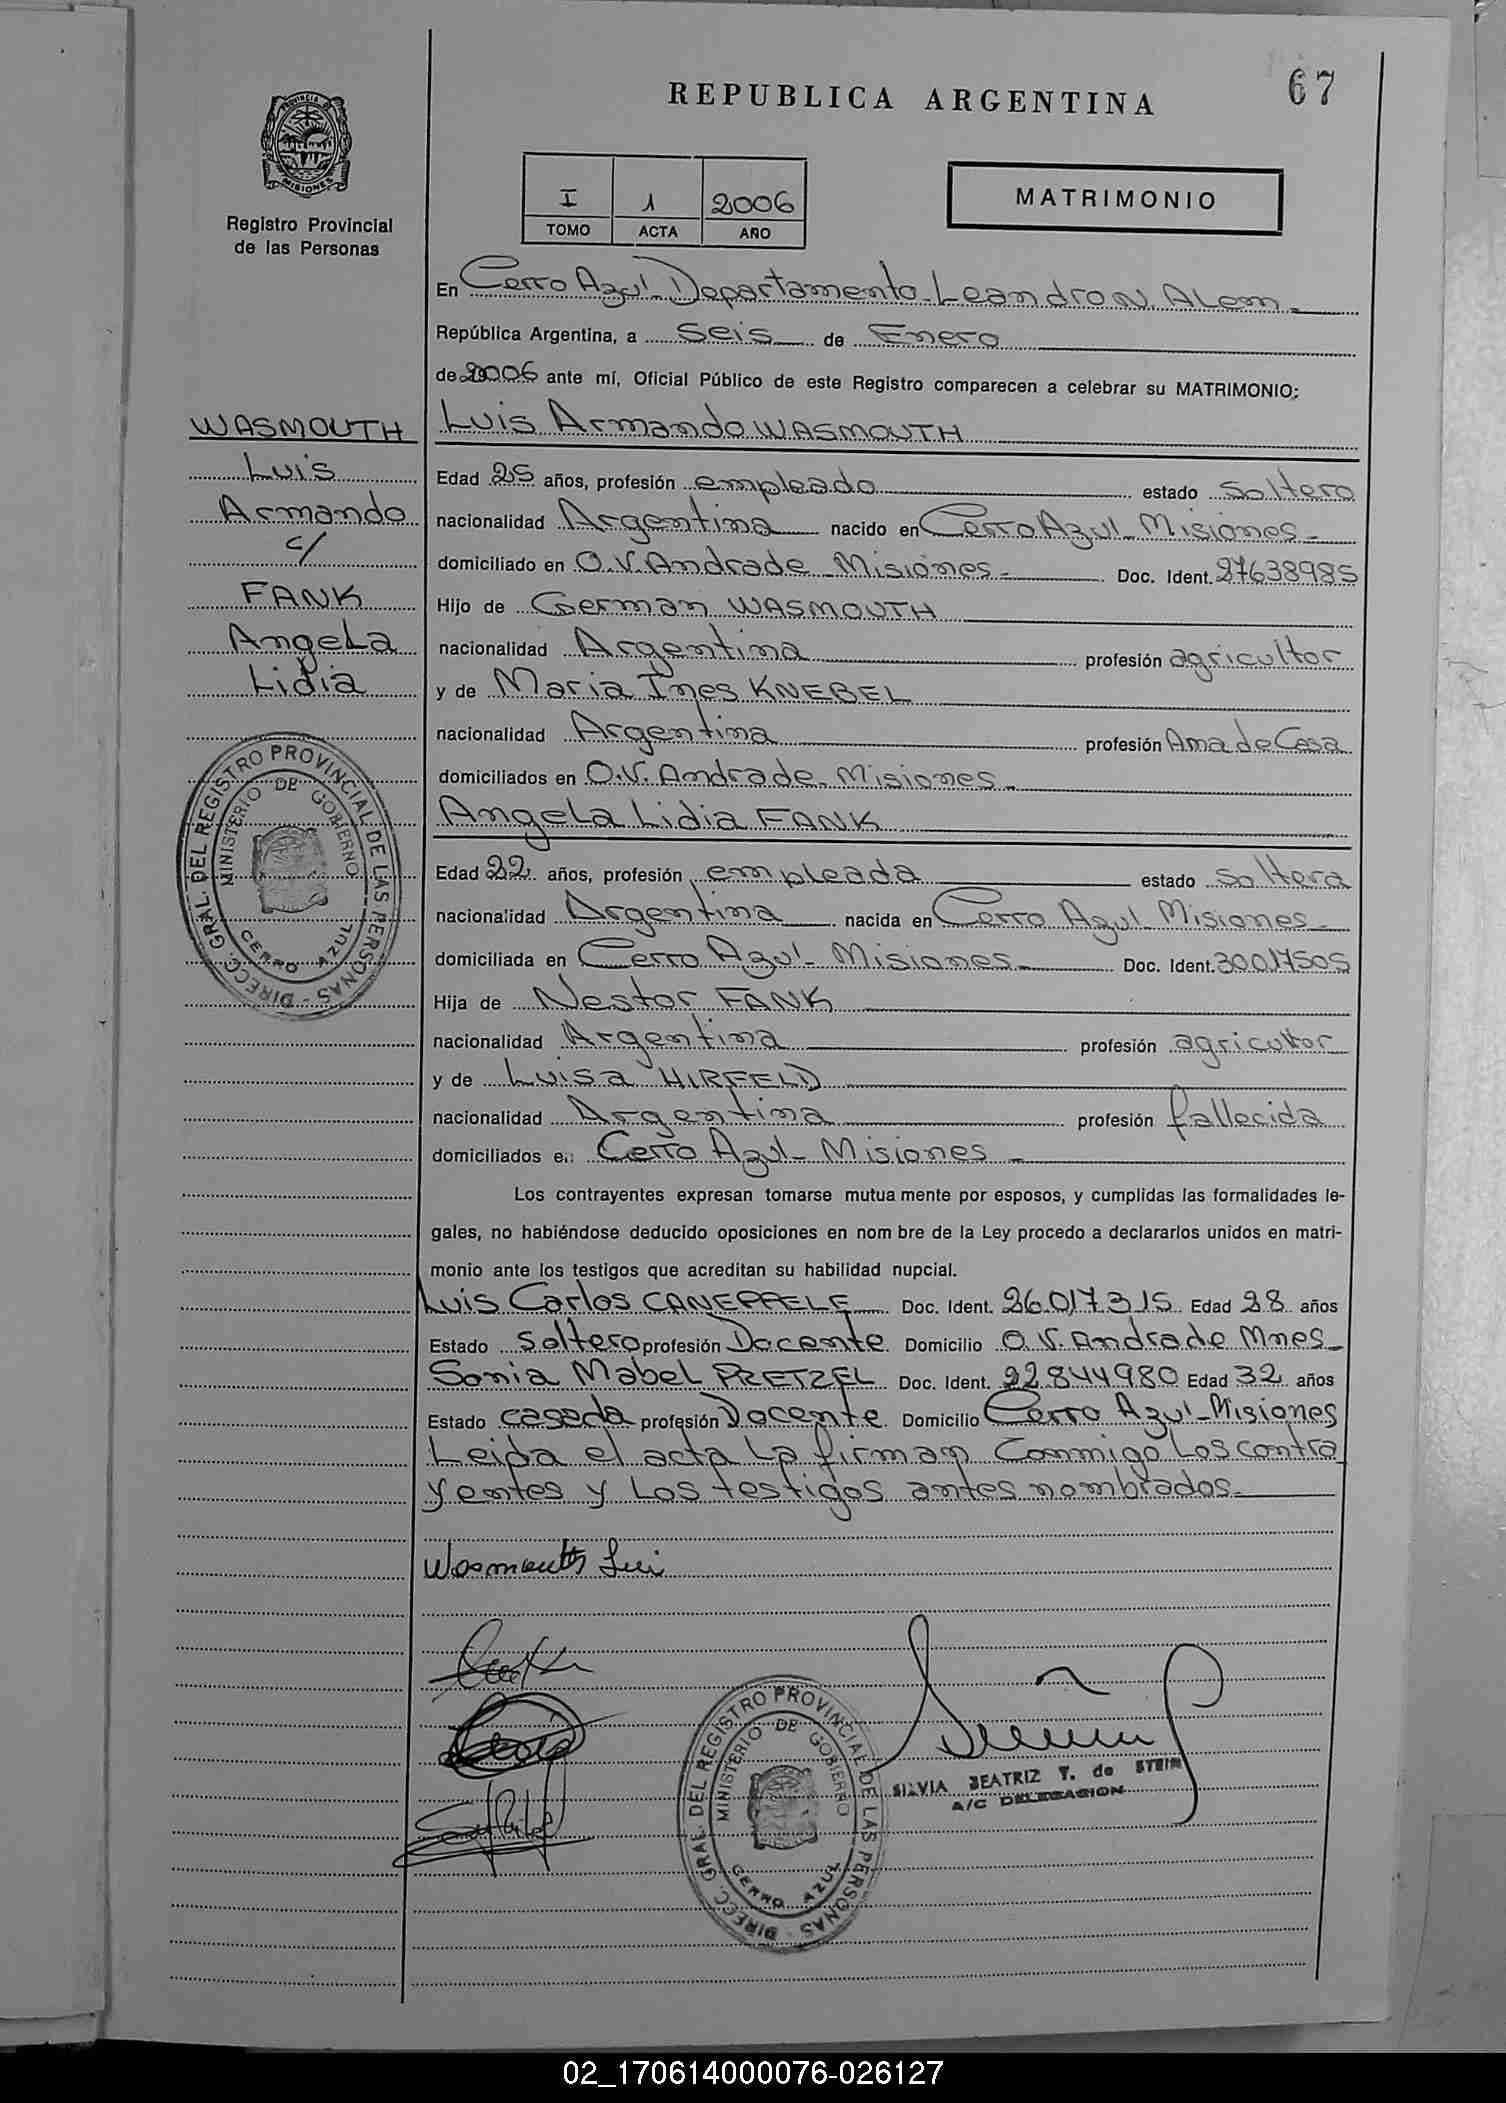 REPUBLICA ARGENTINA
67
PROVINCIA DE
MISIONES
Registro Provincial
de las Personas
I 1 2006
TOMO ACTA AÑO
MATRIMONIO
En Cerro Azul - Departamento - Leandro N. ALem -
República Argentina, a seis de Enero
de 2006 ante mí, Oficial Público de este Registro comparecen a celebrar su MATRIMONIO:
WASMOUTH
Luis
Armando
c/
FANK
AngeLa
Lidia
Luis Armando WASMOUTH
Edad 25 años, profesión empleado estado soltero
nacionalidad Argentina nacido en Cerro Azul - Misiones -
domiciliado en O.V. Andrade - Misiones - Doc. Ident. 27638985
Hijo de German WASMOUTH
nacionalidad Argentina profesión agricultor
y de Maria Ines KNEBEL
nacionalidad Argentina profesión Ama de Casa
domiciliados en O.V. Andrade - Misiones -
AngeLa Lidia FANK
Edad 22 años, profesión empleada estado soltera
nacionalidad Argentina nacida en Cerro Azul Misiones -
domiciliada en Cerro Azul - Misiones - Doc. Ident. 30017505
Hija de Nestor FANK
nacionalidad Argentina profesión agricultor
y de Luisa HIRFELD
nacionalidad Argentina profesión fallecida
domiciliados en Cerro Azul - Misiones -
Los contrayentes expresan tomarse mutua mente por esposos, y cumplidas las formalidades le-
gales, no habiéndose deducido oposiciones en nom bre de la Ley procedo a declararlos unidos en matri-
monio ante los testigos que acreditan su habilidad nupcial.
Luis Carlos CANEPPELE Doc. Ident. 26.017.315 Edad 28 años
Estado soltero profesión Docente Domicilio O.V. Andrade Mnes -
Sonia MabeL PRETZEL Doc. Ident. 22.844980 Edad 32 años
Estado casada profesión Docente Domicilio Cerro Azul - Misiones
Leida el acta La firman Conmigo Los contra
yentes y Los testigos antes nombrados -
Wasmouth Luis
DIRECC. GRAL. DEL REGISTRO PROVINCIAL DE LAS PERSONAS -
MINISTERIO DE GOBIERNO
CERRO AZUL
DIRECC. GRAL. DEL REGISTRO PROVINCIAL DE LAS PERSONAS -
MINISTERIO DE GOBIERNO
CERRO AZUL
SILVIA BEATRIZ Y. de STEIN
A/C DELEGACION
02_170614000076-026127